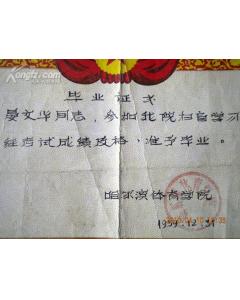 毕业证书
晏文华同志，参加我院扫盲学习
经考试成绩及格，准予毕业。
哈尔滨体育学院
1959.12.31